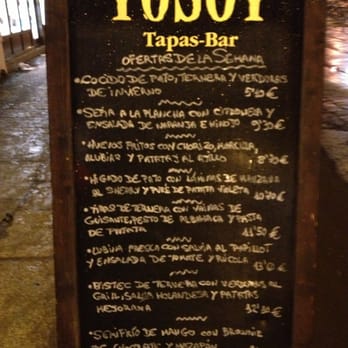 YOSOY
Tapas-Bar
OFERTAS DE LA SEMANA
• COCIDO DE PATO, TERNERA Y VERDURAS
DE INVIERNO 5'90 €
• SEPIA A LA PLANCHA CON CITRONELA Y
ENSALADA DE NARANJA E HINOJO 9'30 €
• HUEVOS FRITOS CON CHORIZO, MORCILLA,
ALUBIAS Y PATATAS AL AJILLO 8'70 €
• HIGADO DE PATO CON LAMINAS DE MANZANA
AL SHERRY Y PURE DE PATATA VIOLETA
DE TERNERA CON VAINAS DE
GUISANTE, PESTO DE ALBAHACA Y PASTA
DE PATATA 11'50 €
• LUBINA FRESCA CON SALVIA AL PAPILLOT
Y ENSALADA DE TOMATE Y RUCOLA
• BISTEC DE TERNERA CON VERDURAS AL
GRILL, SALSA HOLANDESA Y PATATAS
MEJORANA 12'50 €
• SEMIFRIO DE MANGO CON BROWNIE
DE CHOCOLATE Y MAZAPÁN